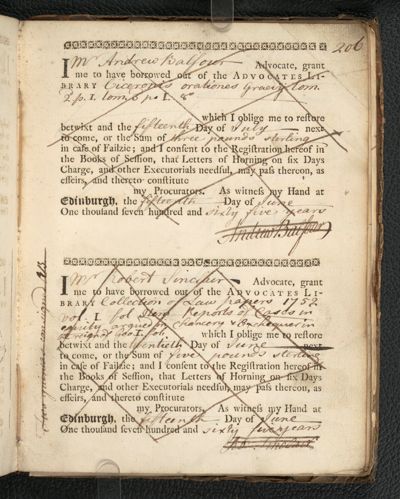 206
I Mr Andrew Balfour Advocate, grant
me to have borrowed out of the ADVOCATES LI-
BRARY Ciceronis orationes Graevij tom.
2. p. I. tom.
which I oblige me to restore
betwixt and the fifteenth Day of July next
to come, or the Sum of three pounds sterling
in case of Failzie; and I consent to the Registration hereof in
the Books of Session, that Letters of Horning on six Days
Charge, and other Executorials needful, may pass thereon, as
effeirs, and thereto constitute
my Procurators. As witness my Hand at
Edinburgh, the fifteenth Day of June
One thousand seven hundred and sixty five years
Andrew Balfour
I Mr Robert Sinclair Advocate, grant
me to have borrowed out of the ADVOCATES LI-
BRARY Collection of Law papers 1752
vol. I. fol. Item Reports of Cases in
equity argued in Chancery & Exchequer in
which I oblige me to restore
betwixt and the twentieth Day of June next
to come, or the Sum of five pounds sterling
in case of Failzie; and I consent to the Registration hereof in
the Books of Session, that Letters of Horning on six Days
Charge, and other Executorials needful, may pass thereon, as
effeirs, and thereto constitute
my Procurators. As witness my Hand at
Edinburgh, the fifteenth Day of June
One thousand seven hundred and sixty five years